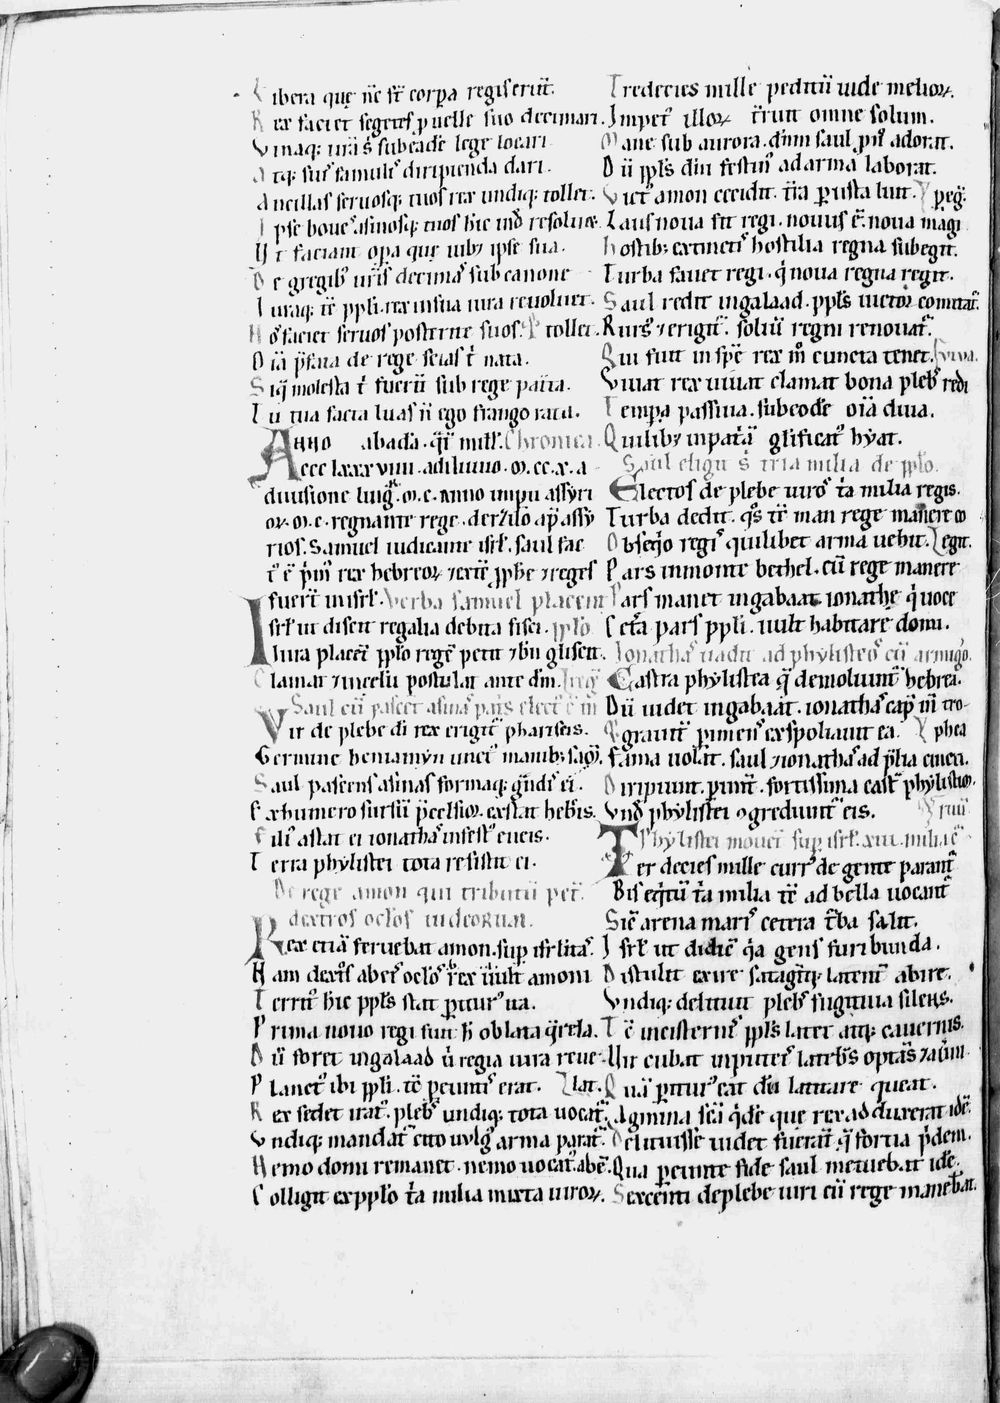 Libera que n̄c st̄ corp̲a regis erūt.
Rex faciet segetes p uelle suo decimari.
Vinaq; ur̄a s̄ subeadē lege locari
Atq; suis famulis diripienda dari.
Ancillas seruosq; tuos rex undiq; tollet.
Ipse boues asinosq; tuos hic
Vt faciant op̲a que iub; ipse sua.
De gregib' ur̄is decimas sub canone
Iuraq; tr̄e ppl̄i rex insua iura reuoluet.
Hos faciet seruos posteritne suos. tollet.
de rege scias t̄ nata.
Siq̄ molesta t̄ fuerū sub rege pat̄ia.
Tu tua facta luas n̄ ego frango rata.
Anno abada. Chronica.
cccc lxxx viiii. adiluuio. m.cc.x. a
diuisione linḡ. m.c. anno impii assyri
oꝝ. m.c. regnante rege ap̄ assy
rios. Samuel iudicauit isrl̄. saul fac
t' ē p̄m' rex hebreoꝝ ⁊ext̄ pph̄e ⁊reges
fuer̄t in isrl̄. Verba samuel placent
Isrl̄ ut discit regalia debita fisci. ppl̄o
Iura placēt ppl̄o regē petit ⁊bn̄ gliscit.
Clamat ⁊incelū postulat ante dm̄.
Saul cū pascet asinas pat̄s elect' ē in
Vir de plebe di rex erigit' phariseis.
Germine beniamyn unct' manib;
Saul pascens asinas formaq; ḡndis ei.
Exhumero sursū p̄celsioꝝ. exstat hebr̄is.
Fili' astat ei ionathas infest' eueis.
Terra phylistei tota resistit ei.
De rege amon qui tributū pet̄.
dextros oclōs iudeorum.
Rex etiā seruebat amon. sup isrl̄itas.
Nam dext̄s aberēt oclōs rex uult amoni
Territ' hic ppl̄s stat p̲itur' ua.
Prima nouo regi fuit h̄ oblata q̄rela.
Dū foret ingalaad ū regia iura reue-
Planct' ibi ppl̄i. erat. lat.
Rex sedet irat'. plebs undiq; tota uocat̄.
Vndiq; mandat' cito uulg' arma parat̄.
Nemo domi remanet. nemo uocat' abē.
Colligit ex ppl̄o t̄a milia mixta uiroꝝ.
Tredecies mille peditū uide melioꝝ.
Impet' illoꝝ t̄ruit omne solum.
Mane sub aurora. dn̄m saul pi' adorat.
Dū ppl̄s dm̄ festin' ad arma laborat.
Vict' amon cecidit. t̄ra p̲usta luit. p̲eg̲.
Laus noua fit regi. nouus ē. noua magi
Hostib; extinctis hostilia regna subegit.
Turba fauet regi. q̄ noua regna regit.
Saul redit ingalaad. ppl̄s uictor comitat̄.
Rurs' ⁊erigit̄. soliū regni renouat̄.
Qui fuit in spē rex m̊ cuncta tenet. sviva.
Viuat rex uiuat clamat bona plebs redi
Temp̲a passiua. subcode oīa diua.
Quilib; inpat̄a glificat' hyat.
Saul eligit s̄ tria milia de ppl̄o.
Electos de plebe uiros t̄a milia regis.
Turba dedit. q̊s tr̄e man rege manere
Obseq̊o regis quilibet arma uehit. legit.
Pars inmonte bethel. cū rege manere
Pars manet ingabaat. ionathe q̄ uoce
Cet̄a pars ppl̄i. uult habitare domi.
Ionathas uadit ad phylisteos cū armig̊.
Castra phylistea q̄ demoliunt̄ hebrea.
Dū uidet ingabaat. ionathas cap̲ tro-
exspoliauit ea. phea
Fama uolat. saul ⁊ionathas ad p̄lia
Diripiunt. p̲imt̄. fortissima cast̄ phylistioꝝ.
Vnd̄ phylistei ꝯgrediunt̄ eis. rum
Phylistei mouēt sup isrl̄. xiii. milia
Ter decies mille currus de gente parant̄
Bis eq̄tū t̄a milia tr̄e ad bella uocant̄
Sic̄ arena maris cetera t̄ba salit.
Isrl̄ ut didic̄ q̄a gens furibunda.
Distulit exire. latent̄ abire.
Vndiq; delituit plebs fugitiua silens.
Tē incisternis ppl̄s latet atq; cauernis.
Vir cubat inputeis latebr̄s
Quā p̲itur' eat dū latitare queat.
Agmina sc̄a q̄dē que rex adduxerat idē.
Delituisse uidet fuerat̄ q̄ fortia p̄dem.
Qua p̲eunte fide saul metueb.at idē.
Sexcenti deplebe uiri cū rege maneb̄at.